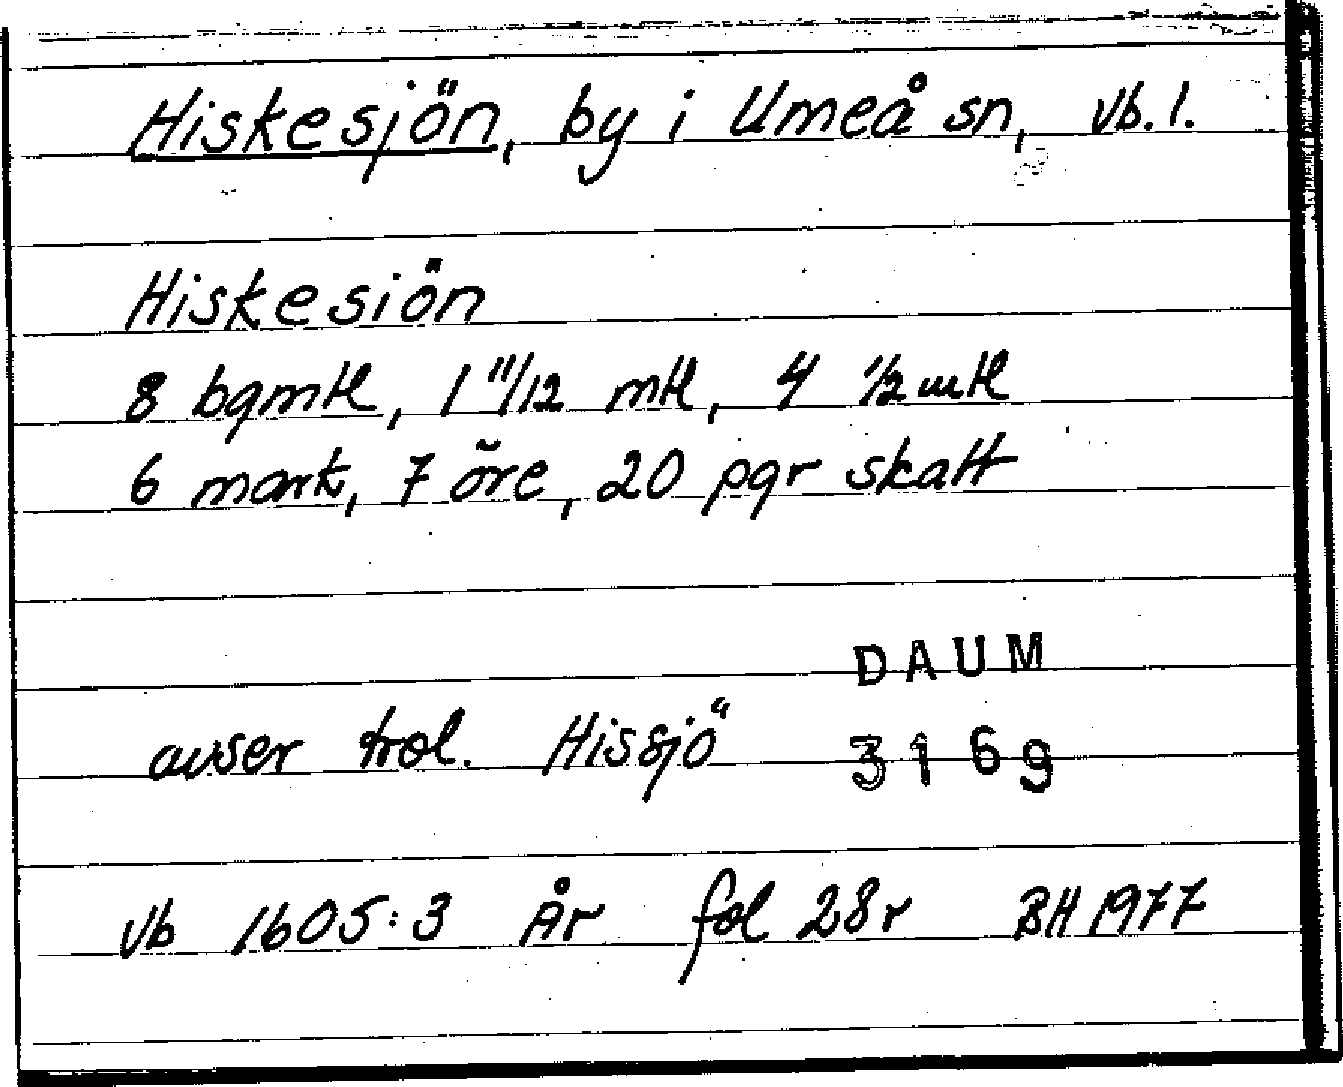 Hiskesjön, by i Umeå sn, Vb. l.
Hiskesiön
8 bgmtl, 1 11/12 mtl, 4 1/2 mtl
6 mark, 7 öre, 20 pgr skatt
DAUM
avser trol. Hissjö 3169
Vb 1605:3 År fol 28r BH 1977